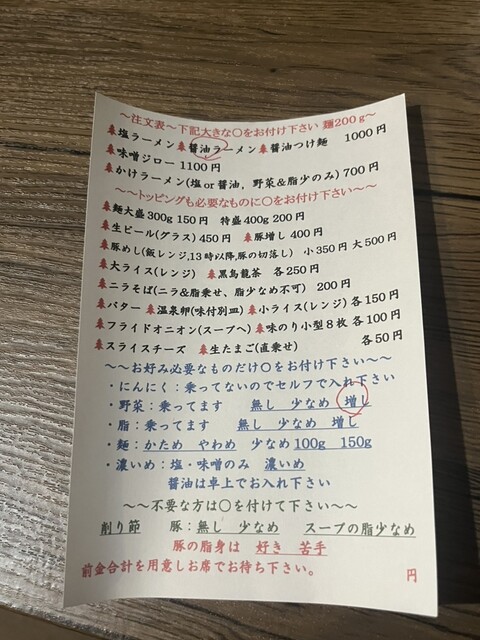 ～注文表～下記大きな〇をお付け下さい 麺200g～
塩ラーメン 醤油ラーメン 醤油つけ麺 1000円
味噌ジロー 1100円
かけラーメン(塩or醤油，野菜&脂少のみ) 700円
～～トッピングも必要なものに〇をお付け下さい～～
麺大盛300g 150円 特盛400g 200円
生ビール(グラス) 450円 豚増し 400円
豚めし(飯レンジ,13時以降,豚の切落し) 小350円 大500円
大ライス(レンジ) 黒烏龍茶 各250円
ニラそば(ニラ&脂乗せ、脂少なめ不可) 200円
バター 温泉卵(味付別皿) 小ライス(レンジ) 各150円
フライドオニオン(スープへ) 味のり小型8枚 各100円
スライスチーズ 生たまご(直乗せ) 各50円
～～お好み必要なものだけ〇をお付け下さい～～
・にんにく：乗ってないのでセルフで入れ下さい
・野菜：乗ってます 無し 少なめ 増し
・脂：乗ってます 無し 少なめ 増し
・麺：かため やわめ 少なめ100g 150g
・濃いめ：塩・味噌のみ 濃いめ
醤油は卓上でお入れ下さい
～～不要な方は〇を付けて下さい～～
削り節 豚：無し 少なめ スープの脂少なめ
豚の脂身は 好き 苦手
前金合計を用意しお席でお待ち下さい。 円